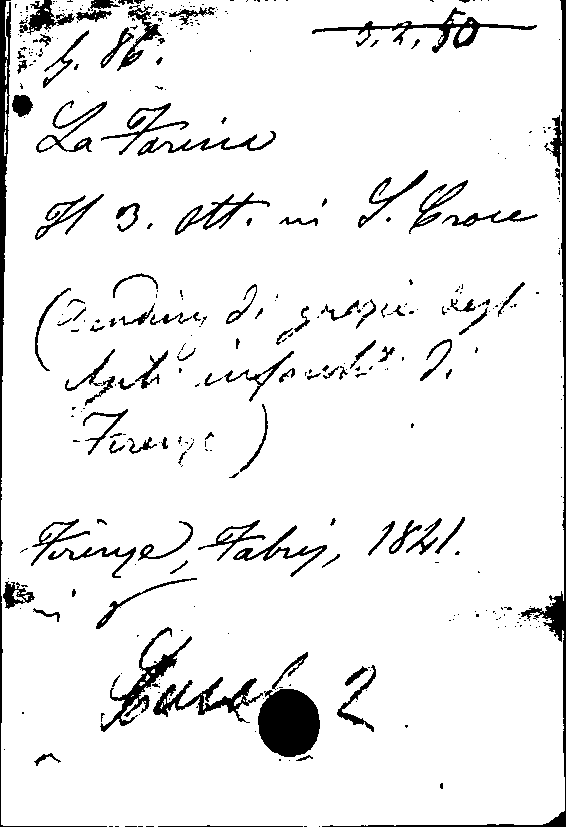 G. 86.
3.2.50
La Farina
Il 3. Ott. in S. Croce
( di grazie degli
Asili di
Firenze)
Firenze, Fabris, 1821.
in 8
2